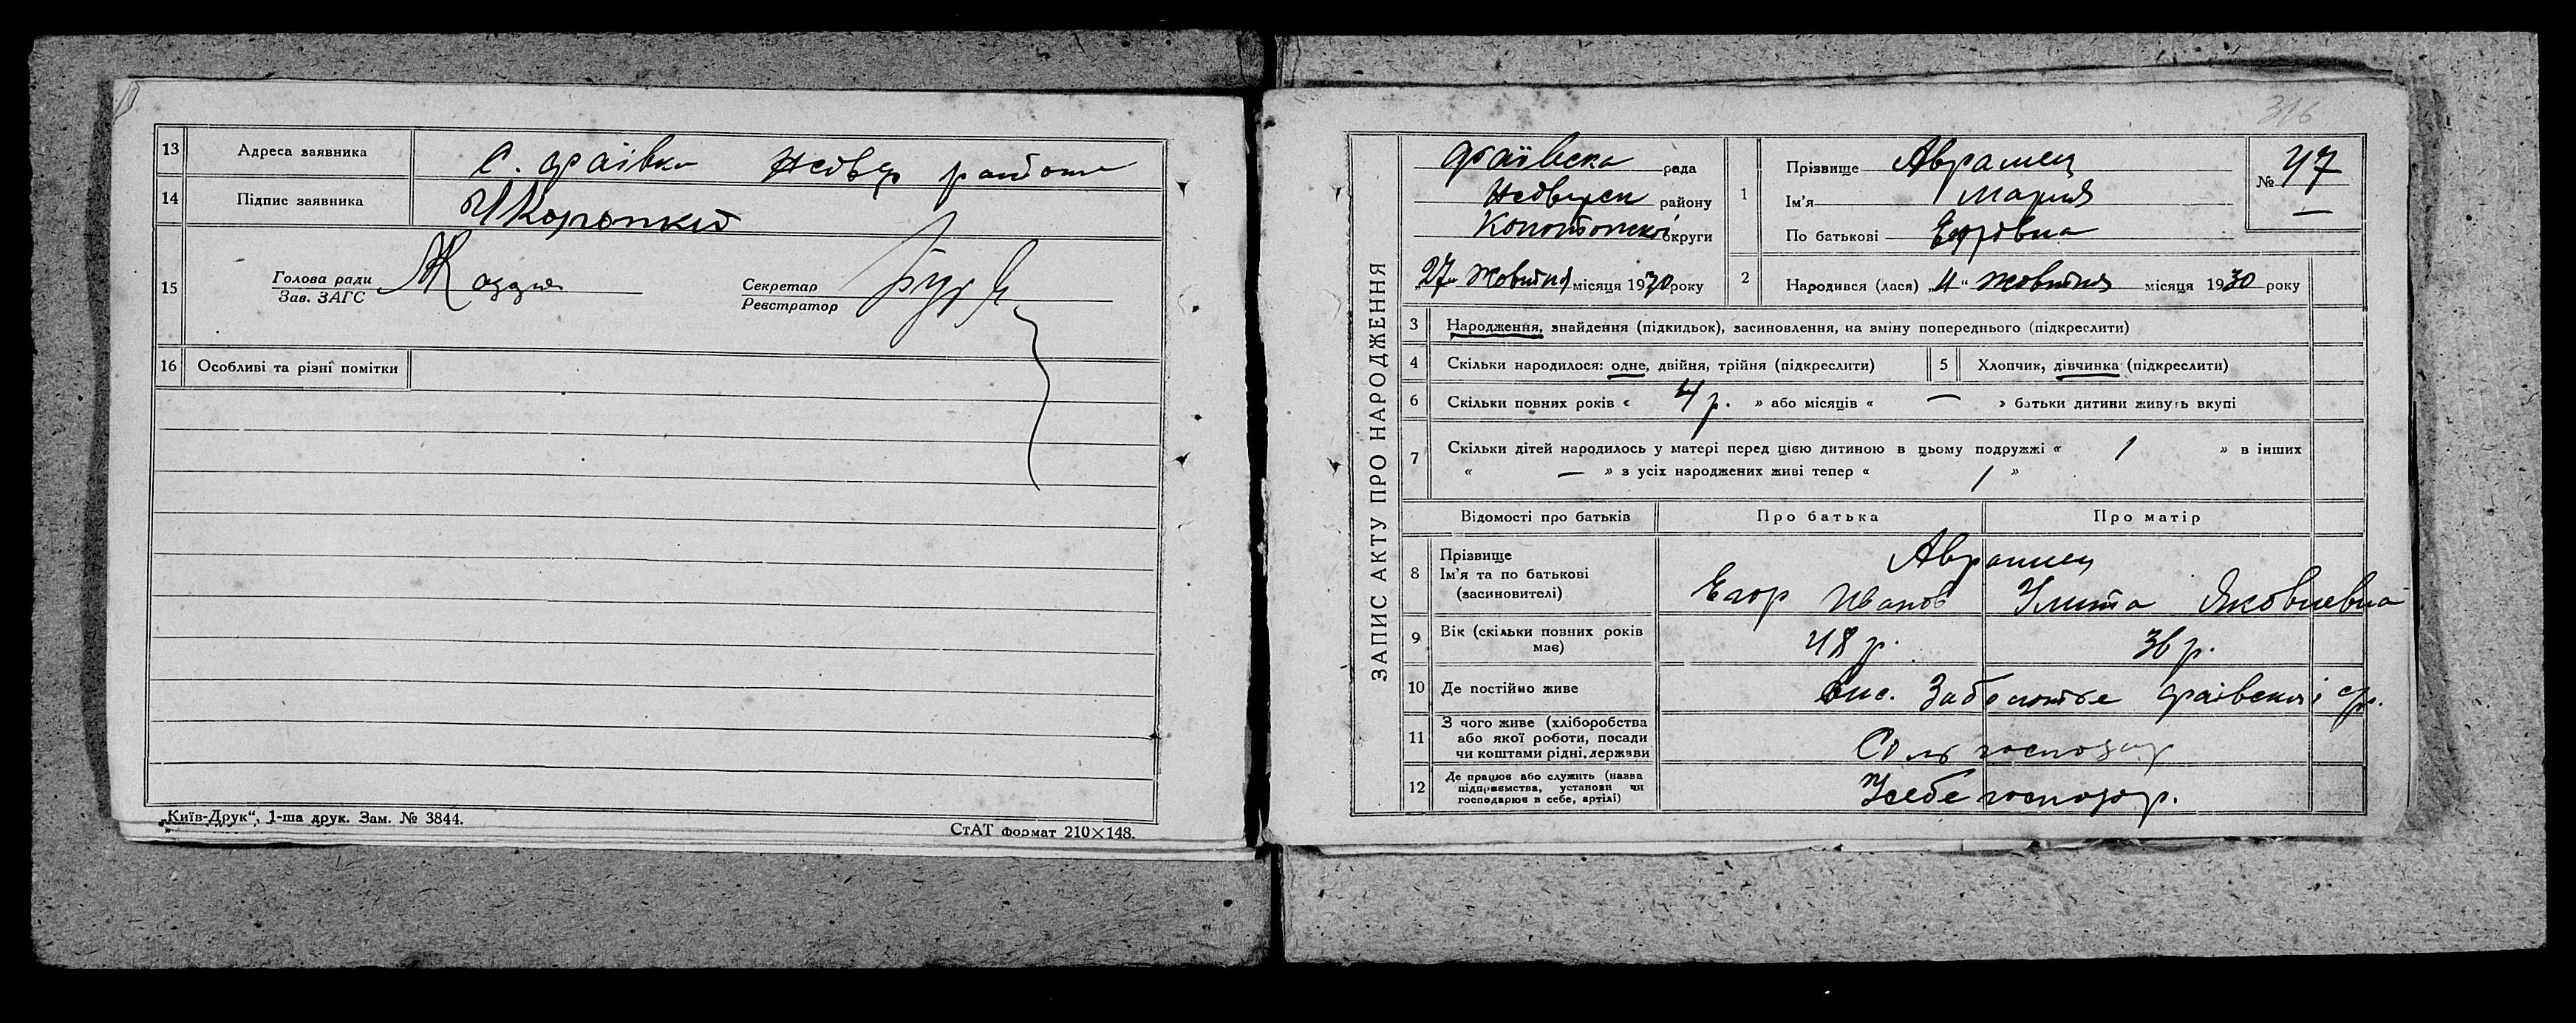 13 Адреса заявника С. Фаївка Недвр району
14 Підпис заявника Короткий
15 Голова ради
Зав. ЗАГС
Секретар
Реєстратор
16 Особливі та різні помітки
„Київ-Друк“, 1-ша друк. Зам. № 3844.
СтАТ формат 210×148.
316
ЗАПИС АКТУ ПРО НАРОДЖЕННЯ
Фаївска рада
району
Конотопскоі округи
27„ Жовтня місяця 1930 року
1 Прізвище Аврамец
Ім'я Мария
По батькові Егоровна
№ 47
2 Народився (лася) „11“ Жовтня місяця 1930 року
3 Народження, знайдення (підкидьок), засиновлення, на зміну попереднього (підкреслити)
4 Скільки народилося: одне, двійня, трійня (підкреслити) 5 Хлопчик, дівчинка (підкреслити)
6 Скільки повних років « 4 р. » або місяців « — » батьки дитини живуть вкупі
7 Скільки дітей народилось у матері перед цією дитиною в цьому подружжі « 1 » в інших
« — » з усіх народжених живі тепер « 1 »
Відомості про батьків Про батька Про матір
8 Прізвище Аврамец
Ім'я та по батькові Егор Иванов Улита Яковлевна
(засиновителі)
9 Вік (скільки повних років має) 48 р. 36 р.
10 Де постійно живе вис. Заболотье Фаівскоі с/р.
11 З чого живе (хліборобства
або якої роботи, посади
чи коштами рідні, держави Сіль господар
12 Де працює або служить (назва
підприємства, установи чи
господарює в себе, артілі) У себе господар.